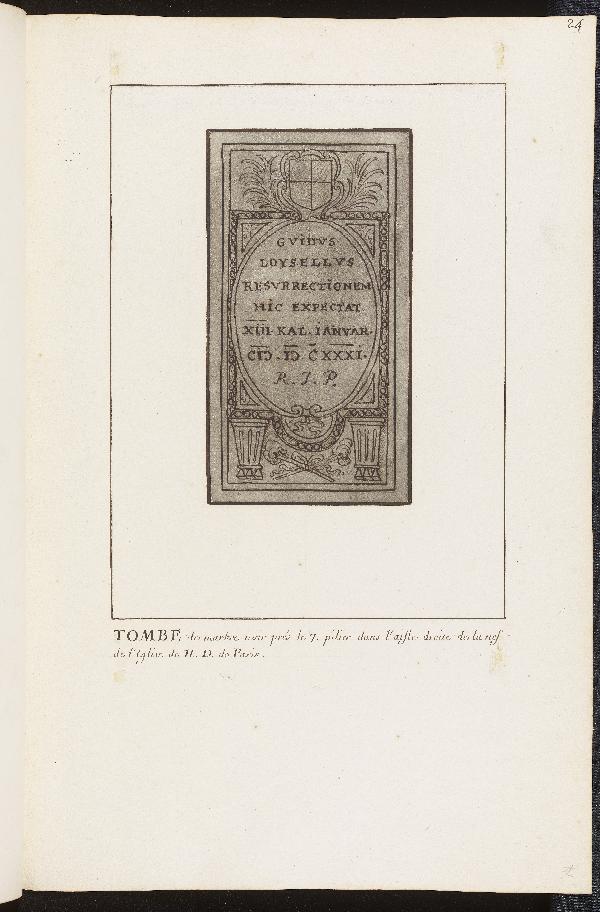 24
GVIDVS
LOYSELLVS
RESVRRECTIONEM
HIC EXPECTAT
XIII. KAL. IANVAR.
CIↃ. IↃ CXXXI.
R. I. P.
TOMBE de marbre noir prés le 7. pilier dans l'aisle droite de la nef
de l'Eglise de N. D. de Paris.